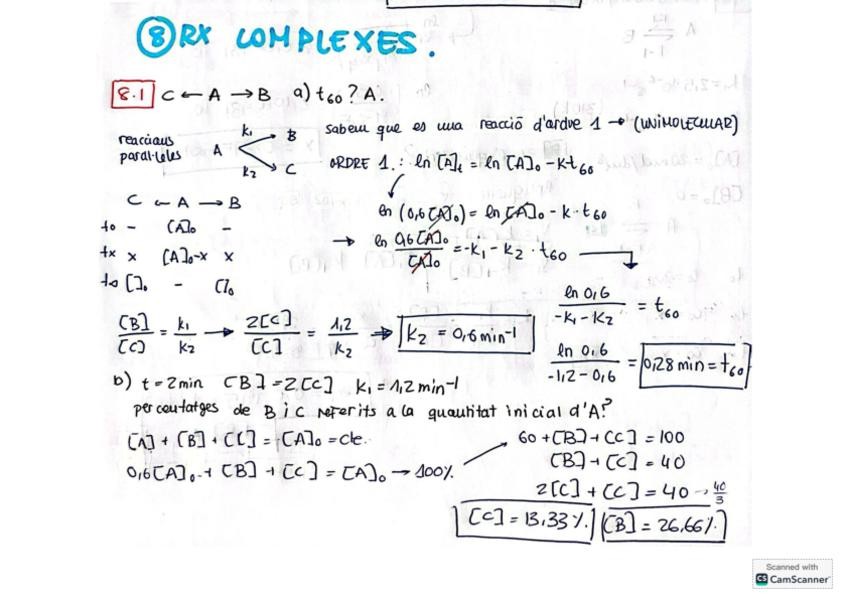 ⑧ RX COMPLEXES.
8.1 C ← A → B a) t60? A.
reaccions paral·leles A k1 B k2 C
sabem que es una reacció d'ordre 1 → (UNIMOLECULAR)
ORDRE 1.: ln [A]t = ln [A]0 - kt60
C ← A → B
ln (0,6[A]0) = ln [A]0 - k·t60
to - [A]0 -
→ ln 0,6[A]0 / [A]0 = -k1 - k2 · t60
tx x [A]0-x x
t∞ []0 - []0
ln 0,6 / -k1-k2 = t60
[B]/[C] = k1/k2 → 2[C]/[C] = 1,2/k2 → k2 = 0,6 min-1
ln 0,6 / -1,2-0,6 = 0,28 min = t60
b) t = 2min [B] = 2[C] k1 = 1,2 min-1
percentatges de B i C referits a la quantitat inicial d'A?
[A] + [B] + [C] = [A]0 = cte.
60 + [B] + [C] = 100
[B] + [C] = 40
0,6[A]0 + [B] + [C] = [A]0 → 100%
2[C] + [C] = 40 → 40/3
[C] = 13,33% [B] = 26,66%
Scanned with
CS CamScanner